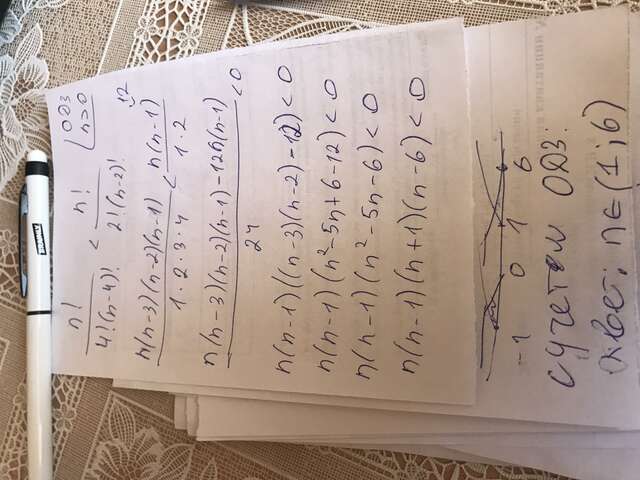 n!/4!(n-4)! < n!/2!(n-2)!
ОДЗ
n>0
n(n-3)(n-2)(n-1)/1·2·3·4 < n(n-1)/1·2
12
n(n-3)(n-2)(n-1)-12n(n-1)/24 < 0
n(n-1)((n-3)(n-2)-12)<0
n(n-1)(n²-5n+6-12)<0
n(n-1)(n²-5n-6)<0
n(n-1)(n+1)(n-6)<0
-1 0 1 6
с учетом ОДЗ:
Ответ: n∈(1;6)